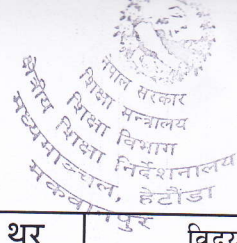 नेपाल सरकार
शिक्षा मन्त्रालय
शिक्षा विभाग
क्षेत्रीय शिक्षा निर्देशनालय
मध्यमाञ्चल, हेटौंडा
मकवानपुर
थर